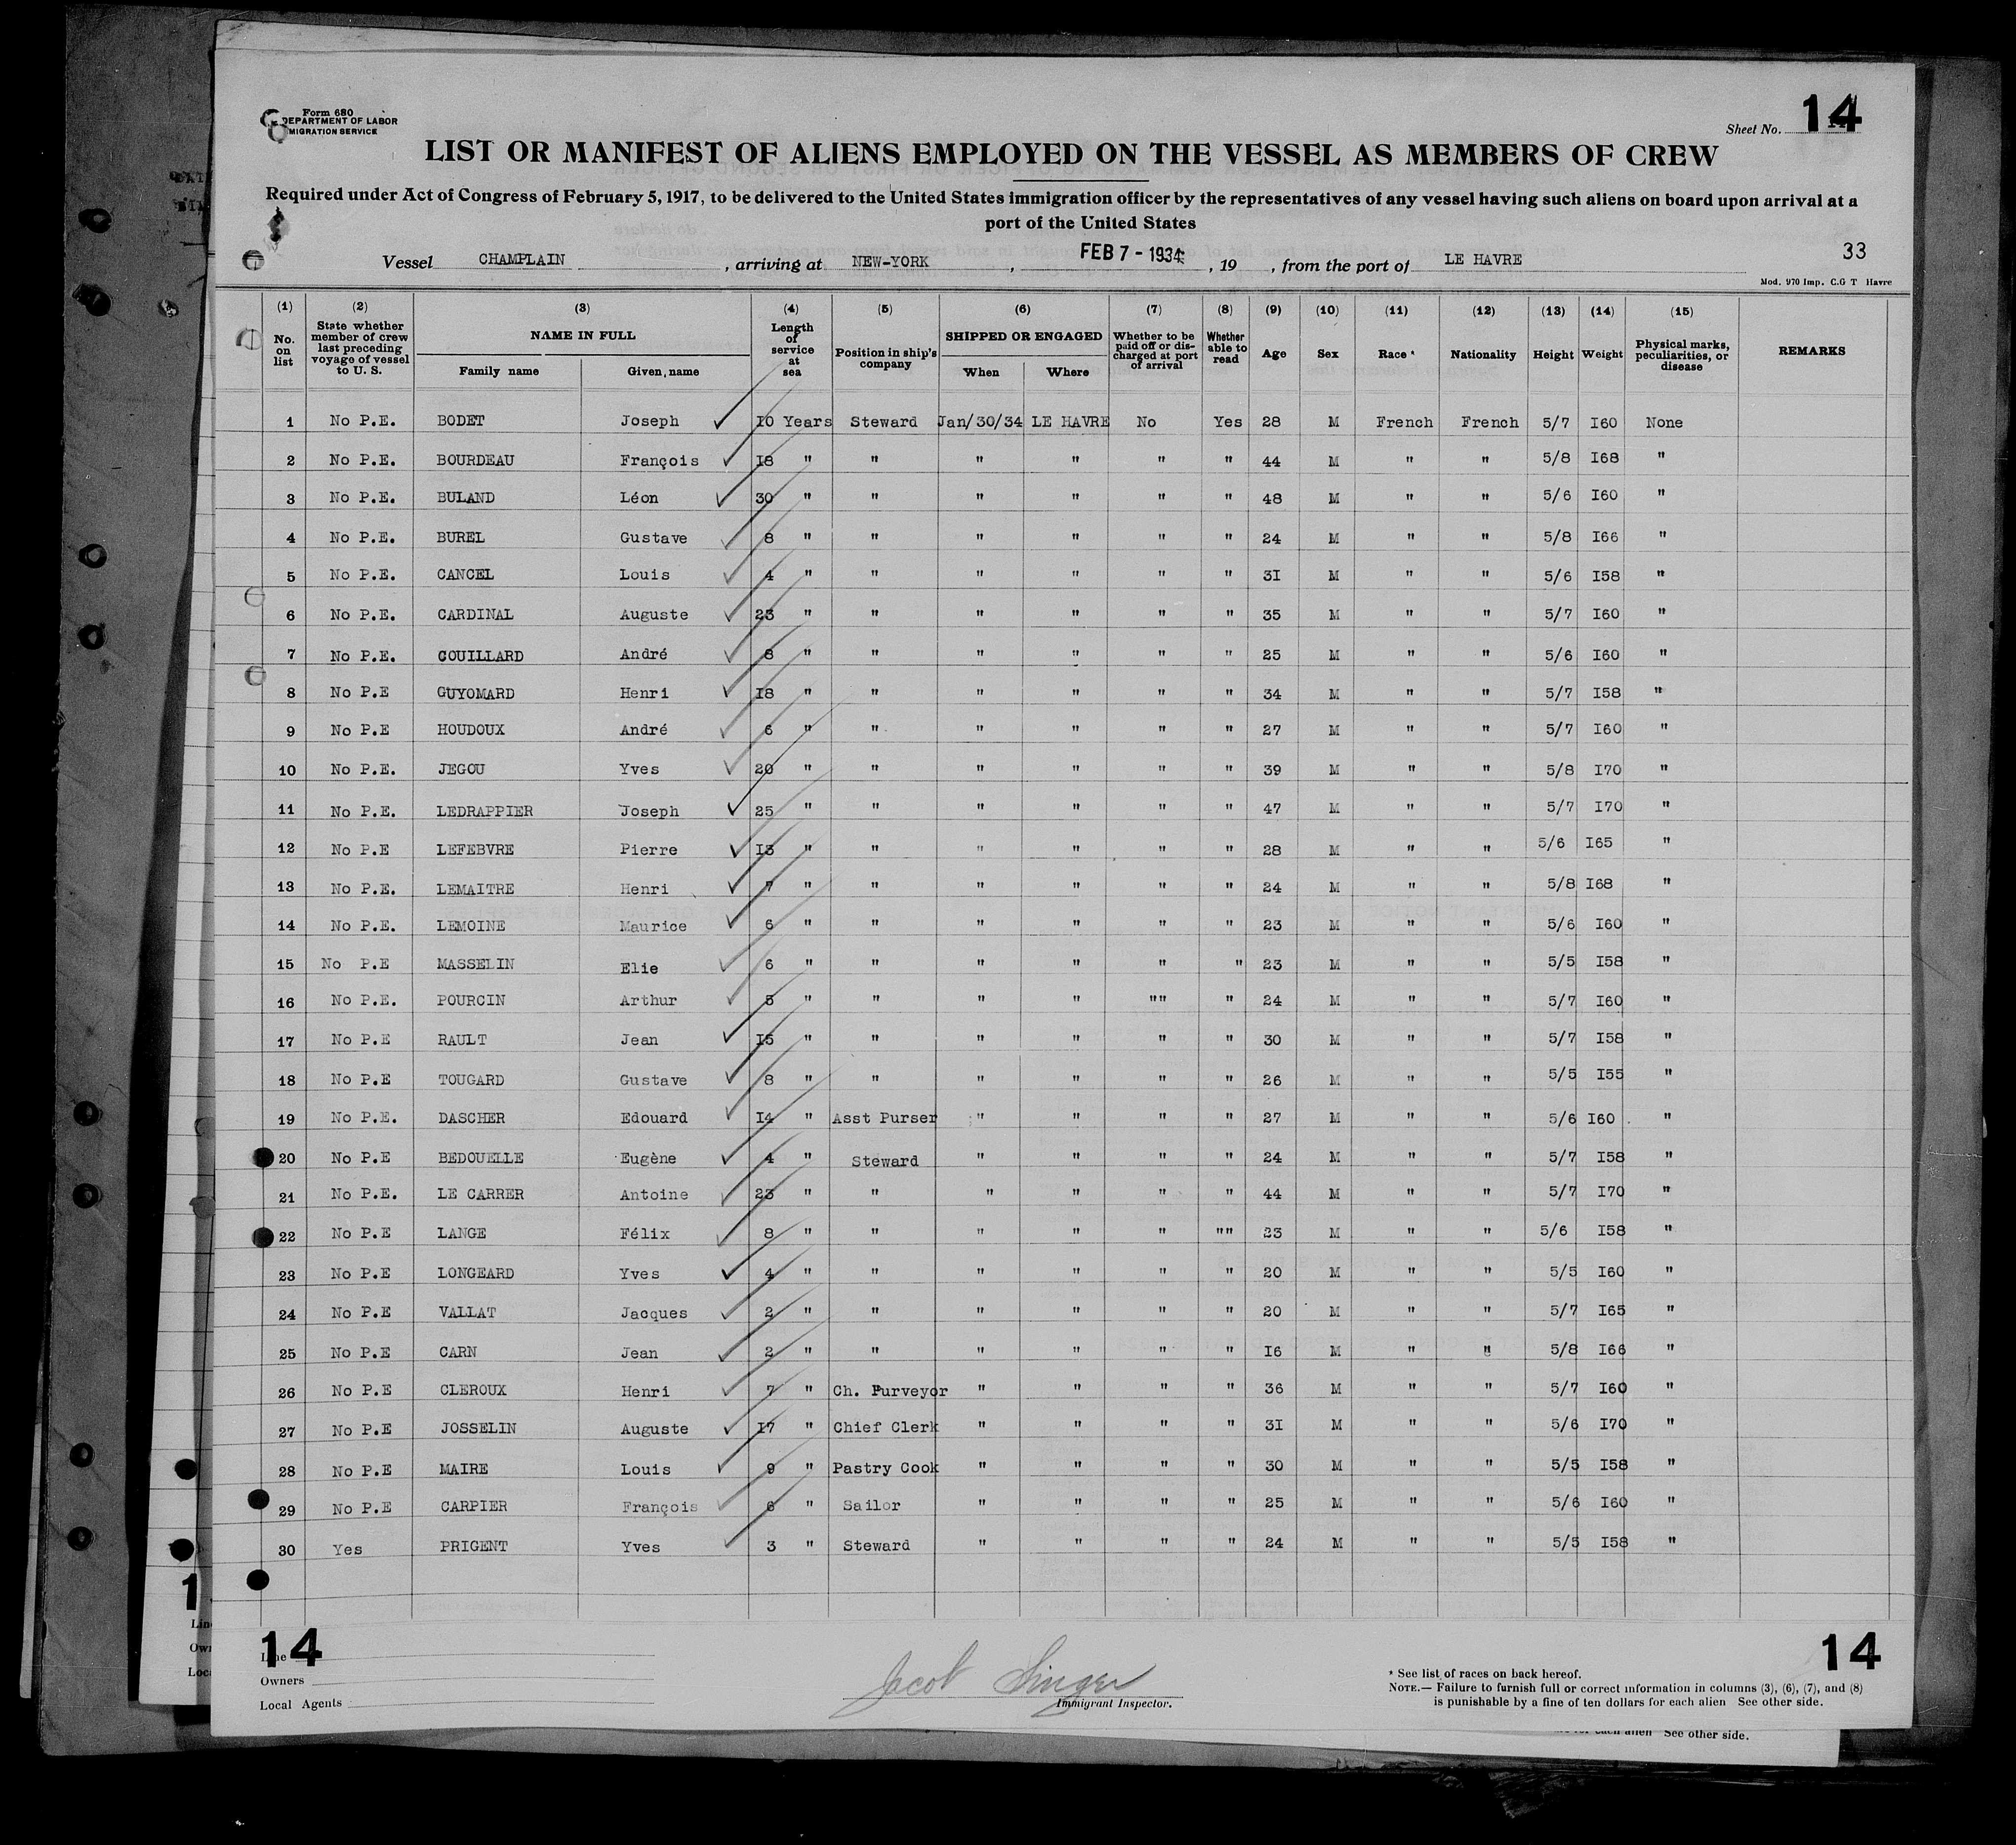 Form 680
DEPARTMENT OF LABOR
MIGRATION SERVICE
Sheet No. 14
LIST OR MANIFEST OF ALIENS EMPLOYED ON THE VESSEL AS MEMBERS OF CREW
Required under Act of Congress of February 5, 1917, to be delivered to the United States immigration officer by the representatives of any vessel having such aliens on board upon arrival at a
port of the United States
Vessel CHAMPLAIN , arriving at NEW-YORK , FEB 7 - 1934 , 19 , from the port of LE HAVRE
33
Mod. 970 Imp. C.G T Havre
(1) (2) (3) (4) (5) (6) (7) (8) (9) (10) (11) (12) (13) (14) (15)
No. on list State whether member of crew last preceding voyage of vessel to U. S. NAME IN FULL Family name Given name Length of service at sea Position in ship's company SHIPPED OR ENGAGED When Where Whether to be paid off or discharged at port of arrival Whether able to read Age Sex Race * Nationality Height Weight Physical marks, peculiarities, or disease REMARKS
1 No P.E. BODET Joseph 10 Years Steward Jan/30/34 LE HAVRE No Yes 28 M French French 5/7 I60 None
2 No P.E. BOURDEAU François I8 " " " " " " 44 M " " 5/8 I68 "
3 No P.E. BULAND Léon 30 " " " " " " 48 M " " 5/6 I60 "
4 No P.E. BUREL Gustave 8 " " " " " " 24 M " " 5/8 I66 "
5 No P.E. CANCEL Louis 4 " " " " " " 3I M " " 5/6 I58 "
6 No P.E. CARDINAL Auguste 23 " " " " " " 35 M " " 5/7 I60 "
7 No P.E. COUILLARD André 8 " " " " " " 25 M " " 5/6 I60 "
8 No P.E GUYOMARD Henri I8 " " " " " " 34 M " " 5/7 I58 "
9 No P.E HOUDOUX André 6 " " " " " " 27 M " " 5/7 I60 "
10 No P.E. JEGOU Yves 20 " " " " " " 39 M " " 5/8 I70 "
11 No P.E. LEDRAPPIER Joseph 25 " " " " " " 47 M " " 5/7 I70 "
12 No P.E LEFEBVRE Pierre I3 " " " " " " 28 M " " 5/6 I65 "
13 No P.E. LEMAITRE Henri 7 " " " " " " 24 M " " 5/8 I68 "
14 No P.E. LEMOINE Maurice 6 " " " " " " 23 M " " 5/6 I60 "
15 No P.E MASSELIN Elie 6 " " " " " " 23 M " " 5/5 I58 "
16 No P.E. POURCIN Arthur 5 " " " " "" " 24 M " " 5/7 I60 "
17 No P.E RAULT Jean I5 " " " " " " 30 M " " 5/7 I58 "
18 No P.E TOUGARD Gustave 8 " " " " " " 26 M " " 5/5 I55 "
19 No P.E. DASCHER Edouard I4 " Asst Purser " " " " 27 M " " 5/6 I60 "
20 No P.E BEDOUELLE Eugène 4 " Steward " " " " 24 M " " 5/7 I58 "
21 No P.E. LE CARRER Antoine 23 " " " " " " 44 M " " 5/7 I70 "
22 No P.E LANGE Félix 8 " " " " " "" 23 M " " 5/6 I58 "
23 No P.E LONGEARD Yves 4 " " " " " " 20 M " " 5/5 I60 "
24 No P.E VALLAT Jacques 2 " " " " " " 20 M " " 5/7 I65 "
25 No P.E CARN Jean 2 " " " " " " I6 M " " 5/8 I66 "
26 No P.E CLEROUX Henri 7 " Ch. Purveyor " " " " 36 M " " 5/7 I60 "
27 No P.E JOSSELIN Auguste I7 " Chief Clerk " " " " 3I M " " 5/6 I70 "
28 No P.E MAIRE Louis 9 " Pastry Cook " " " " 30 M " " 5/5 I58 "
29 No P.E CARPIER François 6 " Sailor " " " " 25 M " " 5/6 I60 "
30 Yes PRIGENT Yves 3 " Steward " " " " 24 M " " 5/5 I58 "
14
Line
Owners
Local Agents
Jacob Singer
Immigrant Inspector.
14
* See list of races on back hereof.
NOTE.— Failure to furnish full or correct information in columns (3), (6), (7), and (8)
is punishable by a fine of ten dollars for each alien See other side.
for each alien See other side.